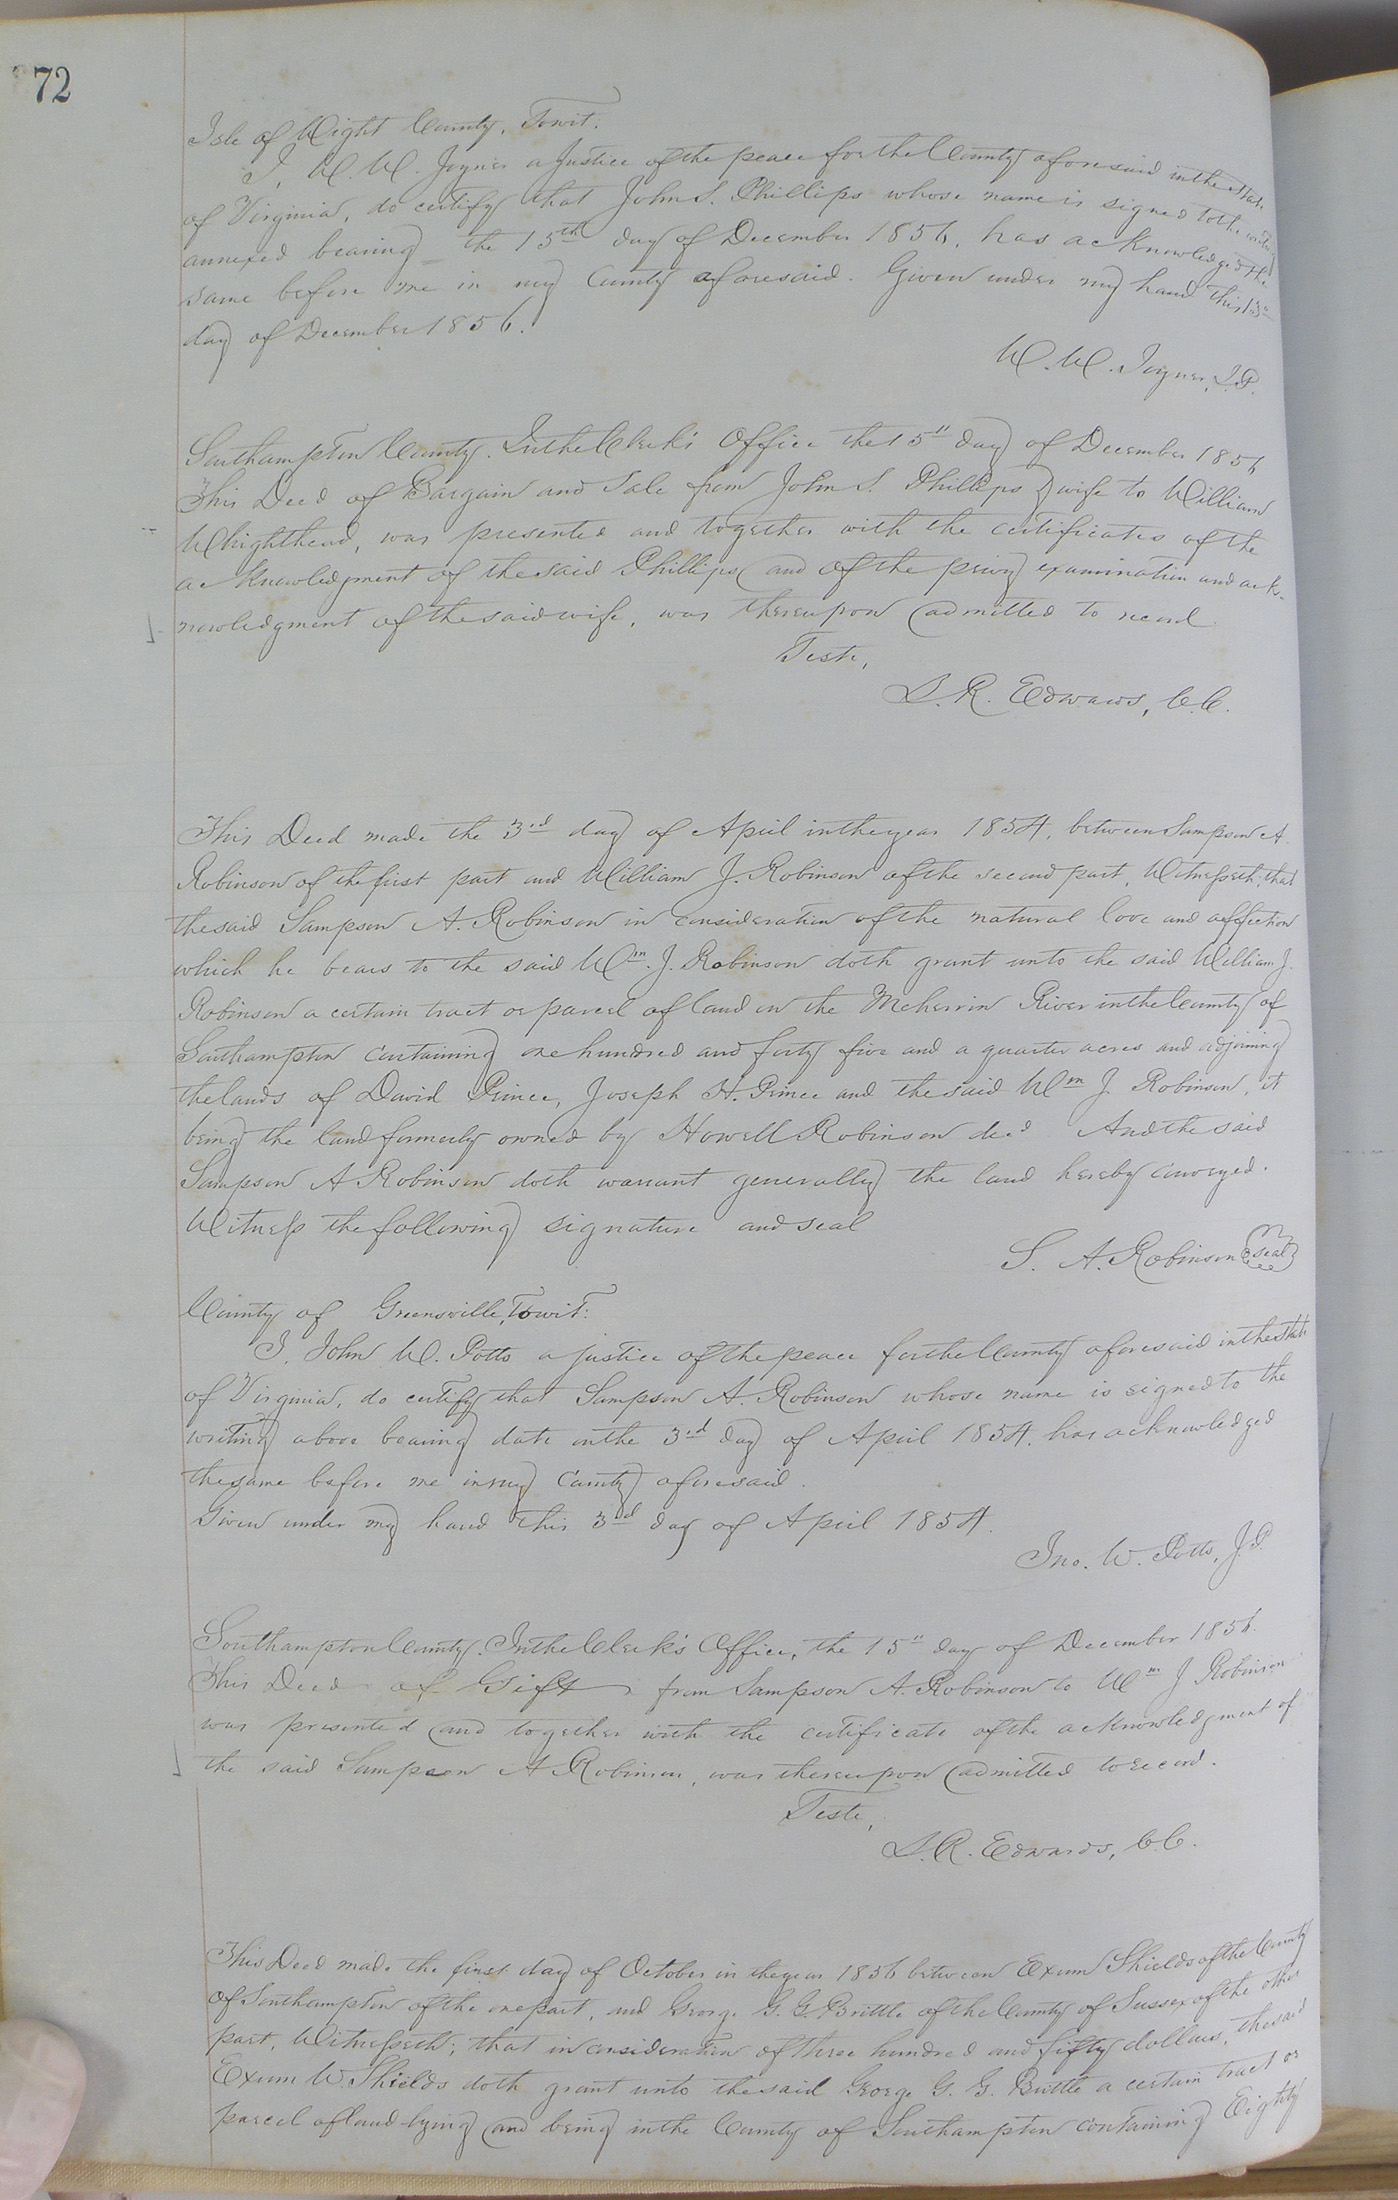 72
Isle of Wight County, Towit.
I, W. W. Joyner a Justice of the peace for the County aforesaid in the State
of Virginia, do certify that John S. Phillips whose name is signed to the
annexed bearing the 15th day of December 1856, has acknowledged the
same before me in my County aforesaid. Given under my hand this
day of December 1856.
W. W. Joyner, J.P.
Southampton County. In the Clerk's Office the 15" day of December 1856
This Deed of Bargain and Sale from John S. Phillips & wife to William
Whighthead, was presented and together with the certificates of the
acknowledgment of the said Phillips and of the privy examination and ack-
nowledgment of the said wife, was thereupon admitted to record.
Teste,
L. R. Edwards, C.C.
This Deed made the 3rd day of April in the year 1854, between Sampson A.
Robinson of the first part and William J. Robinson of the second part, Witnesseth; that
the said Sampson A. Robinson in consideration of the natural love and affection
which he bears to the said Wm. J. Robinson doth grant unto the said William J.
Robinson a certain tract or parcel of land on the Meherrin River in the County of
Southampton containing one hundred and forty five and a quarter acres and adjoining
the lands of David Prince, Joseph H. Prince and the said Wm J. Robinson, it
being the land formerly owned by Howell Robinson decd And the said
Sampson A Robinson doth warrant generally the land hereby conveyed.
Witness the following signature and seal
S. A. Robinson seal
County of Greensville, Towit:
I, John W. Potts a justice of the peace for the County aforesaid in the State
of Virginia, do certify that Sampson A. Robinson whose name is signed to the
writing above bearing date on the 3rd day of April 1854, has acknowledged
the same before me in my County aforesaid.
Given under my hand this 3rd day of April 1854.
Jno. W. Potts, J.P.
Southampton County. In the Clerk's Office, the 15" day of December 1856.
This Deed of Gift from Sampson A. Robinson to Wm J Robinson
was presented and together with the certificate of the acknowledgment of
the said Sampson A Robinson, was thereupon admitted to record.
Teste,
L. R. Edwards, C.C.
This Deed made the first day of October in the year 1856 between Exum Shields of the County
of Southampton of the one part, and George G. G. Brittle of the County of Sussex of the other
part, Witnesseth; that in consideration of three hundred and fifty dollars, the said
Exum W. Shields doth grant unto the said George G. G. Brittle a certain tract or
parcel of land lying and being in the County of Southampton containing Eighty